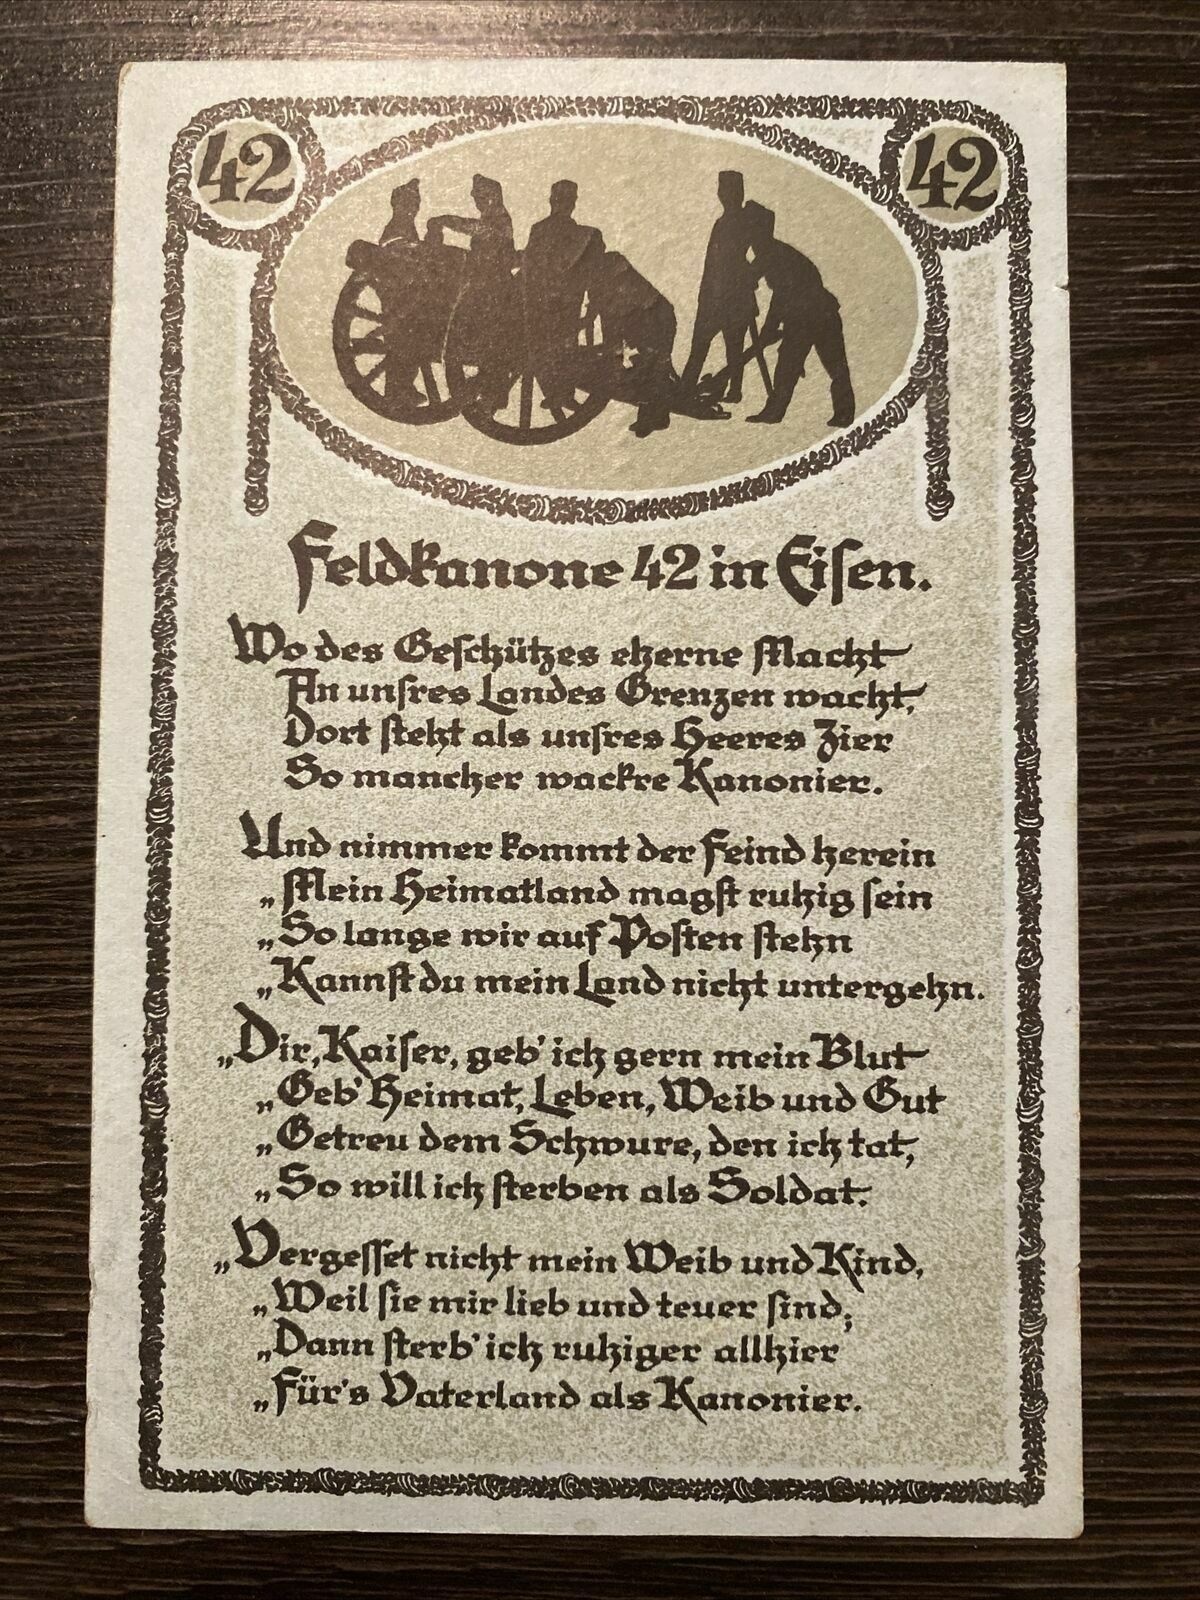 42 42
Feldkanone 42 in Eisen.
Wo des Geschützes eherne Macht
An unsres Landes Grenzen wacht,
Dort steht als unsres Heeres Zier
So mancher wackre Kanonier.
Und nimmer kommt der Feind herein
„Mein Heimatland magst ruhig sein
„So lange wir auf Posten stehn
„Kannst du mein Land nicht untergehn.
„Dir, Kaiser, geb' ich gern mein Blut
„Geb' Heimat, Leben, Weib und Gut
„Getreu dem Schwure, den ich tat,
„So will ich sterben als Soldat.
„Vergesset nicht mein Weib und Kind,
„Weil sie mir lieb und teuer sind;
„Dann sterb' ich ruhiger allhier
„Für's Vaterland als Kanonier.